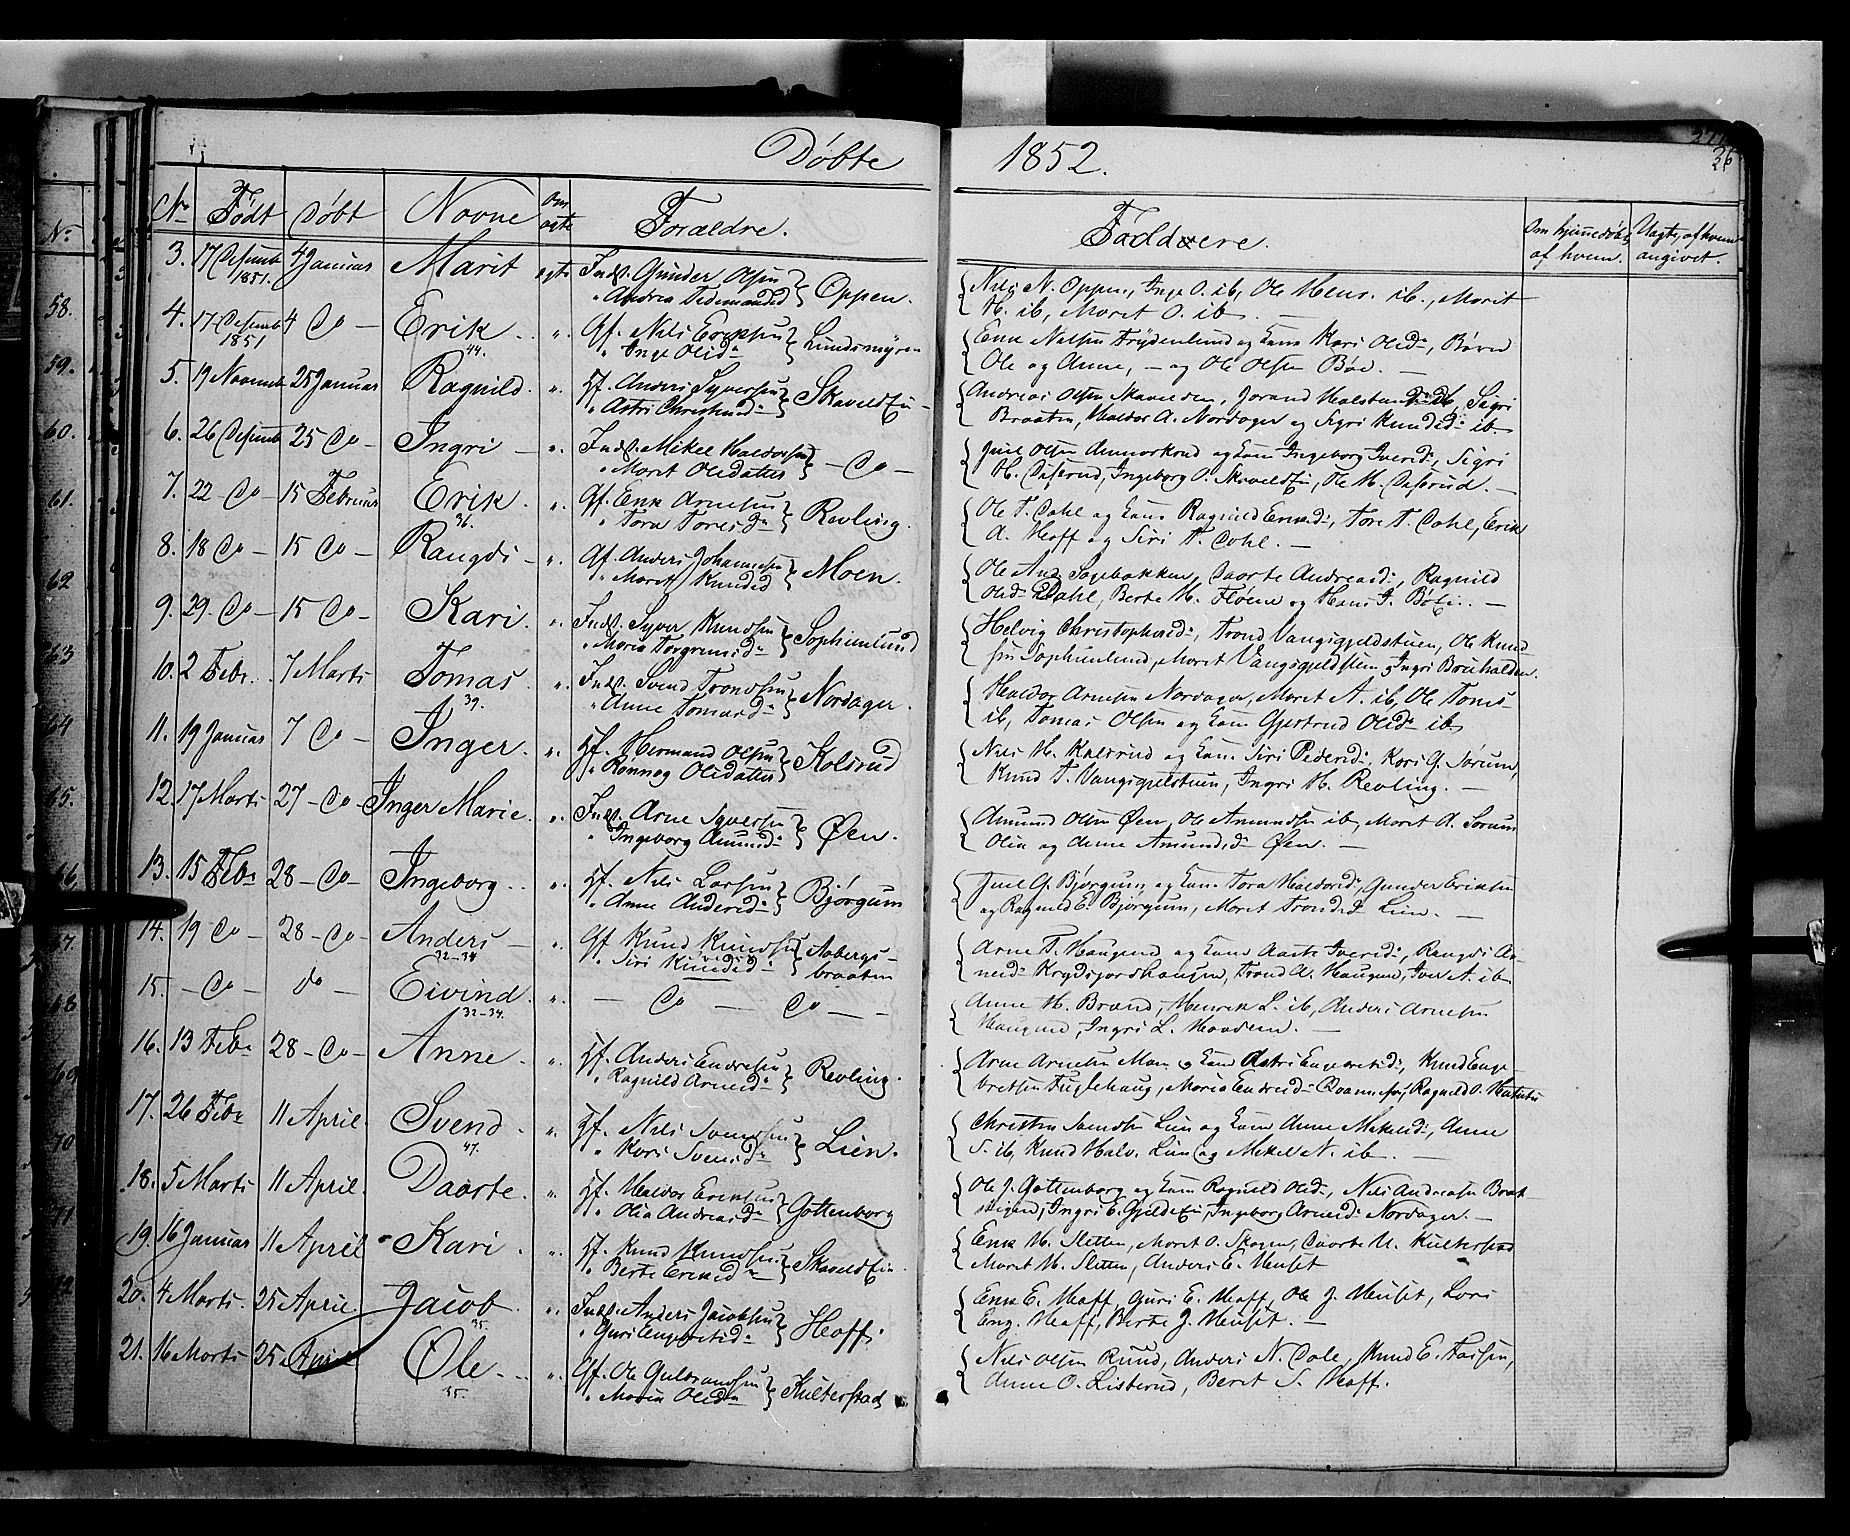 Døbte 1852.
26
No Født Døbt Navne Om ægte Forældre. Faddere. Om hjemmedøbt, af hvem. Uægte, af hvem angivet.
3. 17 Desemb 1851. 4 Januar Marit ægte Inds. Gunder Olsen
" Andrea Tidemandsd } Oppen.
{ Nils N. Oppen, Inge O. ib, Ole Hens. ib., Marit
H. ib, Maret O. ib. —
4. 17 Desemb 1851 4 Do — Erik 44. " Gf. Nils Eriksen
" Inge Olsd } Lundsmyren
{ Erik Nelsen Frydenlund og kone Kari Olsd, Børn
Ole og Anne, — og Ole Olsen Bøe. —
5. 19 Novemb 25 Januar Ragnild. " Hf. Anders Syversen
" Astri Christensd } Skaveldfin —
{ Andreas Olsen Skavelden, Jorand Halstensd ib, Sigri
Braaten, Haldor A. Nordager og Sigri Knudsd ib.
6. 26 Desemb 25 Do — Ingri — " Inds. Mikel Haldorsen
" Maret Olsdatter } — Do —
{ Juul Olsen Aamotkrud og kone Ingeborg Iversd, Sigri
H. Diserud, Ingeborg O. Skaveldfin, Ole H. Diserud. —
7. 22 — Do — 15 Februar Erik. 36. " Gf. Erik Arnesen
" Tora Toresd } Revling.
{ Ole T. Dahl og kone Ragnild Eriksd, Tore T. Dahl, Erik
A. Hoff og Siri T. Dahl. —
8. 18 Do — 15 Do — Rangdi — " Gf. Anders Johannesen
" Maret Knudsd } Moen.
{ Ole And. Sagebakken, Daarte Andreasd, Ragnild
Olsd Dahl, Berte H. Fløene og Hans J. Bøfin. —
9. 29. Do — 15 Do — Kari. " Inds. Syver Knudsen
" Maria Torgrimsd } Sophienlund
{ Helvig Christophersd, Trond Vangsgjeldstuen, Ole Knud-
sen Sophienlund, Maret Vangsgjeldstuen og Ingri Bruhalden.
10. 2 Febr. 7 Marts Tomas 39. " Inds. Svend Trondsen
" Anne Tomasd } Nordager.
{ Haldor Arnesen Nordager, Maret A. ib, Ole Toms-
ib, Tomas Olsen og kone Gjertrud Olsd ib.
11. 19 Januar 7 Do — Inger. " Hf. Hermand Olsen
" Rønnog Olsdatter } Kolsrud
{ Nils H. Kolsrud og kone Siri Pedersd, Kari G. Sørum,
Knud T. Vangsgjelstuen, Ingri H. Revling. —
12. 17 Marts 27 — Do — Inger Marie. " Inds. Arne Syversen
" Ingeborg Amundsd } Øen.
{ Amund Olsen Øen, Ole Amundsen ib, Maret A. Sørum
Olia og Anne Amundsd Øen. —
13. 15 Febr 28 — Do — Ingeborg. " Hf. Nils Larsen
" Anne Andersd } Bjørgum
{ Juul G. Bjørgum og kone Tora Haldorsd, Gunder Eriksen
og Ragnild E. Bjørgum, Maret Trondsd Lien. —
14. 19 Do — 28 — Do — Anders — 32-34 " Gf. Knud Knudsen
" Siri Knudsd } Aabergs-
braaten
{ Arne T. Haugerud og kone Aaste Iversd, Rangdi Ar-
nesd Krydsjorshaugen, Trond A. Haugerud, Iver A. ib.
15. — Do — do — Eivind. 32-34. " — Do — Do — —
{ Anne H. Brænd, Henrik L. ib, Anders Arnesen
Haugerud, Ingri L. Haadem. —
16. 13 Febr 28 — Do — Anne. " Hf. Anders Endresen
" Ragnild Arnesd } Revling.
{ Arne Arnesen Moen og kone Astri Engebretsd, Knud Enge-
bretsen Fuglehaug, Maria Endresd, Ragnild O.
17. 26 Febr 11 April. Svend. 47. " Hf. Nils Svendsen
" Kari Svensd } Lien.
{ Christen Svendsen Lien og kone Anne Mikkelsd, Anne
S. ib, Knud Halv. Lien og Mekel N. ib. —
18. 5 Marts 11 April. Daarte. " Hf. Haldor Eriksen
" Olia Andreasd } Gottenborg
{ Ole J. Gottenborg og kone Ragnild Olsd, Nils Andreasen Brat-
stigen, Ingri E. Gjeldefin, Ingeborg Arnesd Nordager. —
19. 16 Januar 11 April Kari. " Hf. Knud Knudsen
" Berte Eriksd } Skaveldfin.
{ Erik H. Sletten, Maret O. Skoven, Daarte U. Kulterstad
Maret H. Sletten, Anders E. Heuset
20. 4 Marts. 25 April. Jacob. 35. " Inds. Anders Jacobsen
" Guri Engebretsd } Hoff.
{ Erik E. Hoff, Guri E. Hoff, Ole J. Heuset, Lars
Eng. Hoff, Berte J. Heuset. —
21. 16 Marts 25 April Ole. 35. " Gf. Ole Guldbrandsen
" Maria Olsd } Kulterstad
{ Nils Olsen Ruud, Anders N. Dale, Knud E. Fossen,
Anne O. Listerud, Beret S. Hoff.
58.
59.
60.
61.
62
63
64
65.
66.
67.
68
69
70
71
72